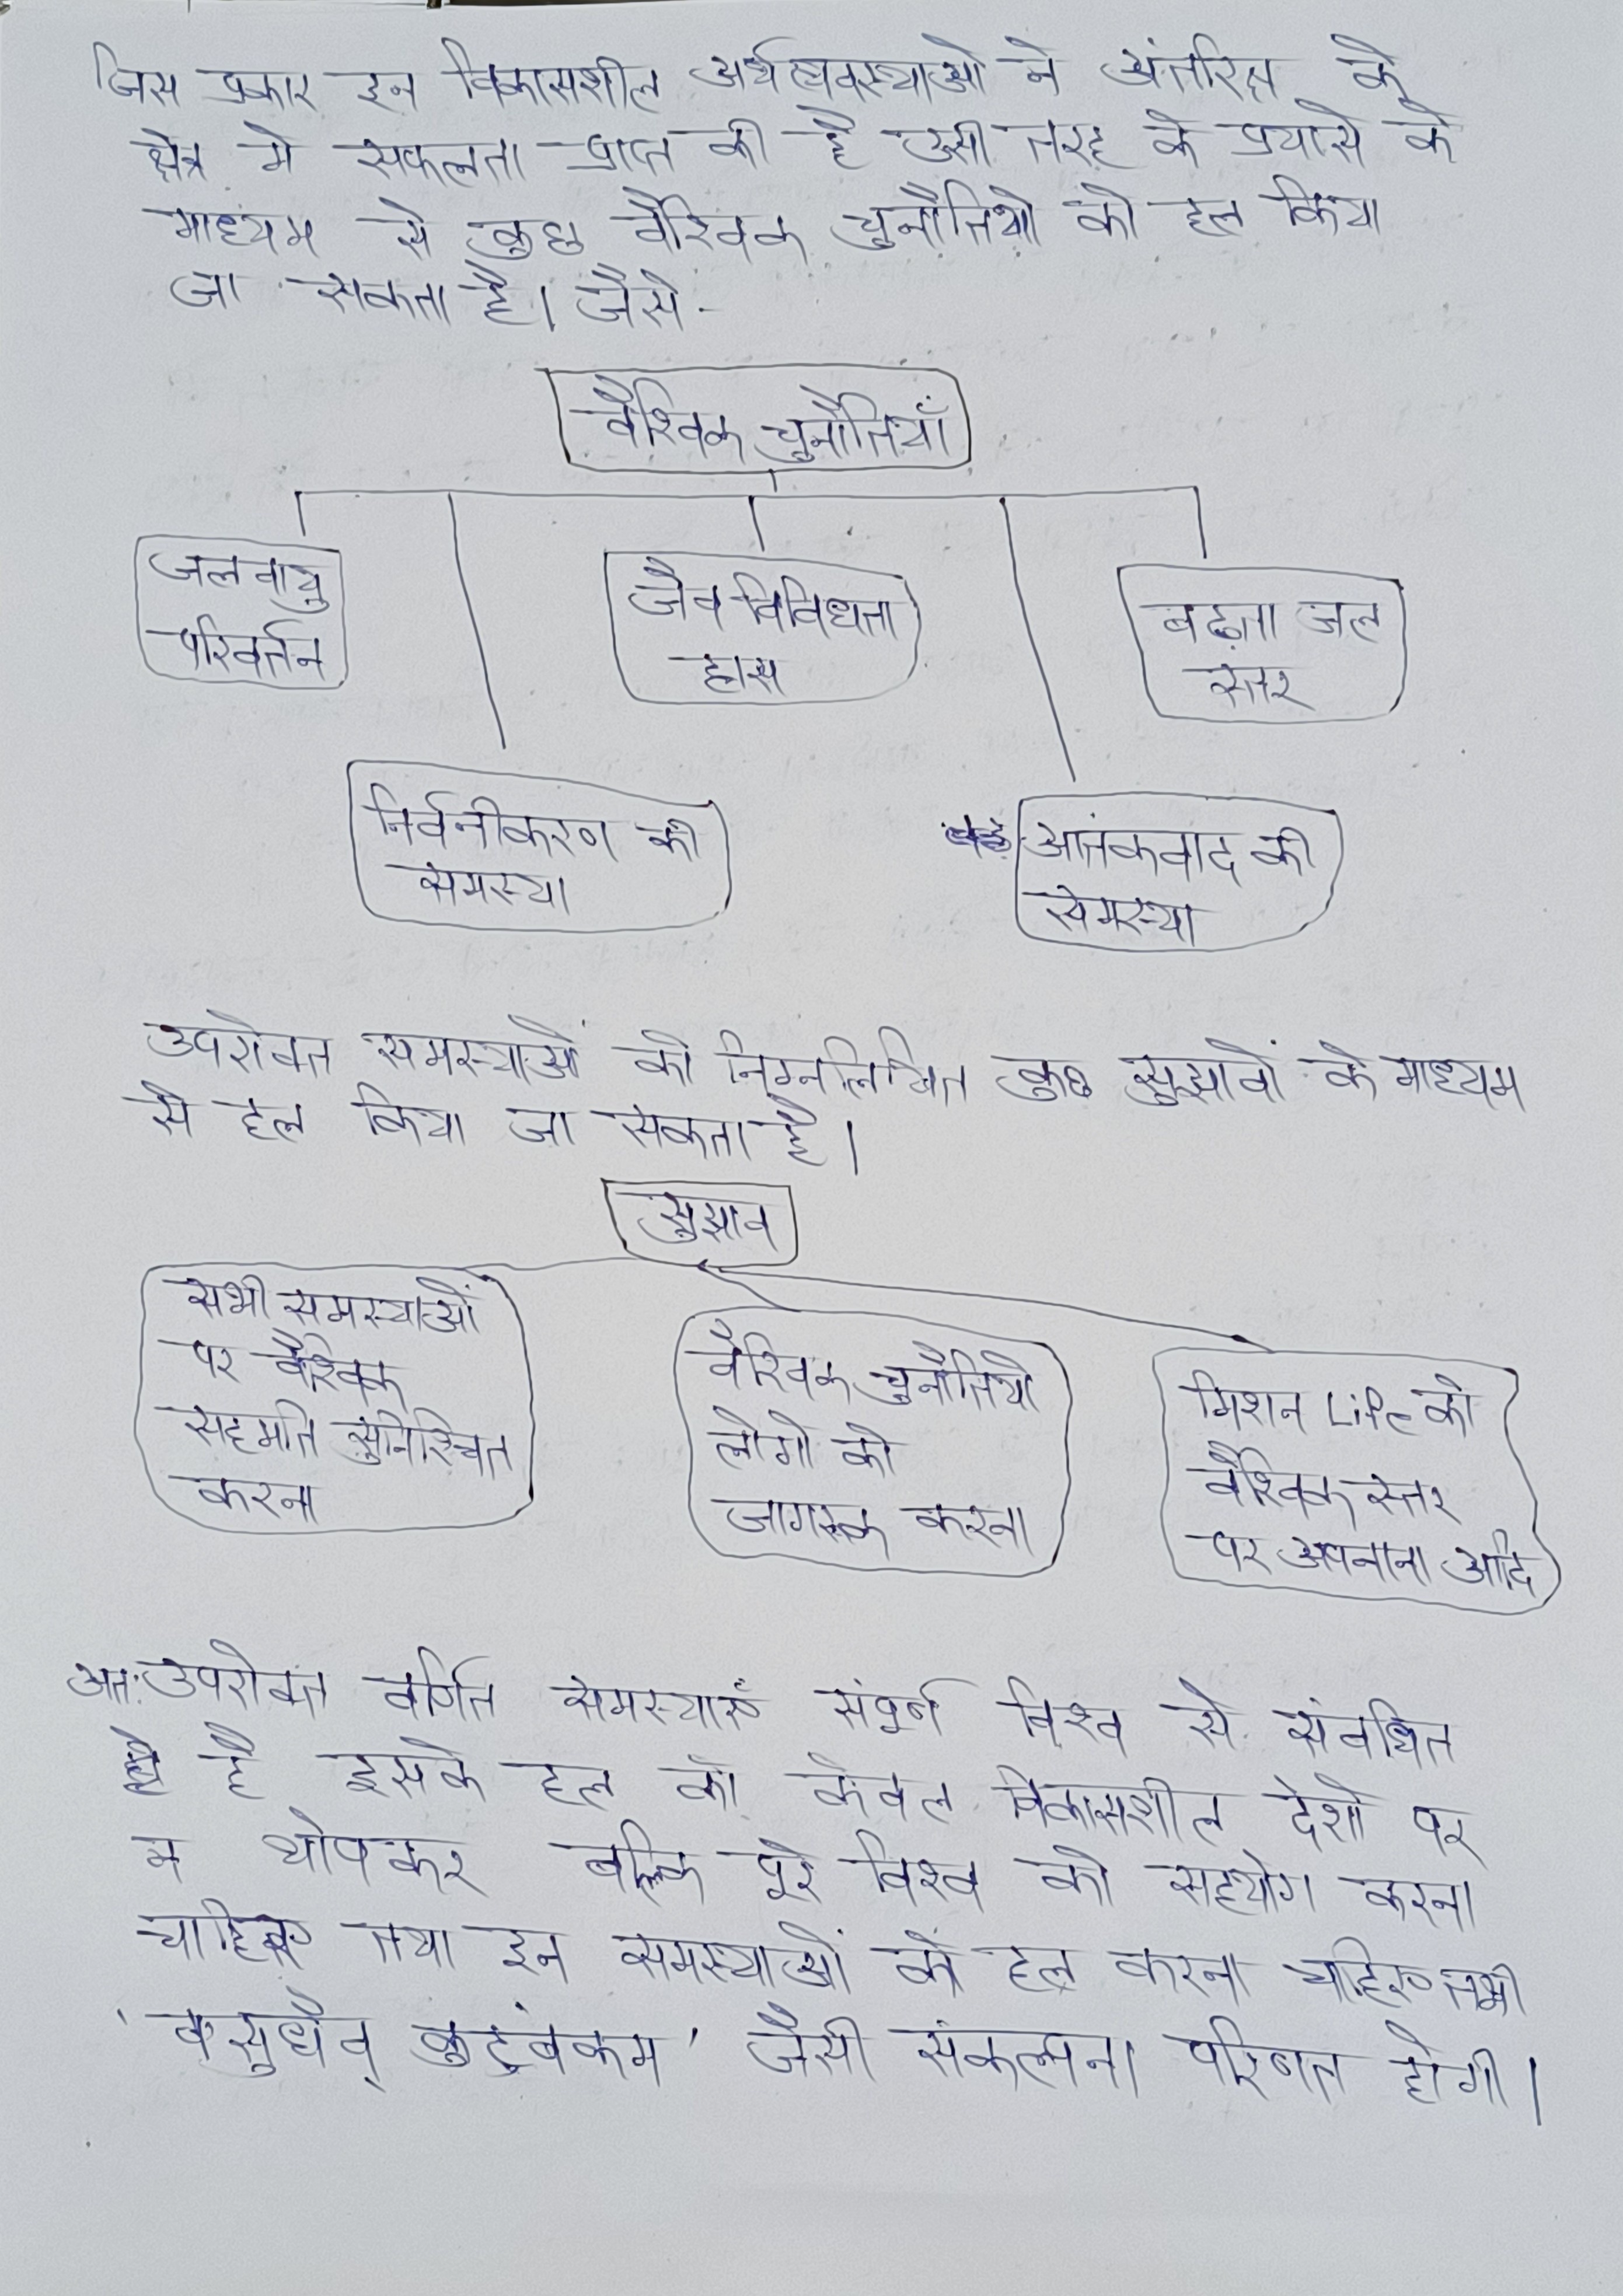 जिस प्रकार इन विकासशील अर्थव्यवस्थाओ ने अंतरिक्ष के
क्षेत्र मे सफलता प्राप्त की है उसी तरह के प्रयासो के
माध्यम से कुछ वैश्विक चुनौतियो को हल किया
जा सकता है। जैसे -
वैश्विक चुनौतियाँ
जलवायु
परिवर्तन
जैव विविधता
ह्रास
बढ़ता जल
स्तर
निर्वनीकरण की
समस्या
आतंकवाद की
समस्या
उपरोक्त समस्याओं को निम्नलिखित कुछ सुझावों के माध्यम
से हल किया जा सकता है।
सुझाव
सभी समस्याओं
पर वैश्विक
सहमति सुनिश्चित
करना
वैश्विक चुनौतियो
लोगो को
जागरूक करना
मिशन Life को
वैश्विक स्तर
पर अपनाना आदि
अतः उपरोक्त वर्णित समस्याएँ संपूर्ण विश्व से संबधित
है इसके हल को केवल विकासशील देशो पर
न थोपकर बल्कि पूरे विश्व को सहयोग करना
चाहिए तथा इन समस्याओं को हल करना चाहिए तभी
'वसुधैव कुटुंबकम' जैसी संकल्पना परिणत होगी।